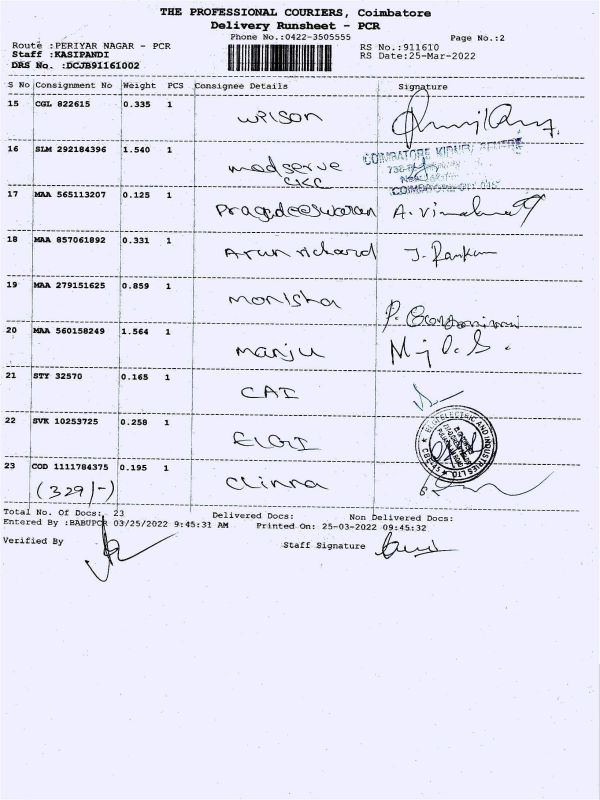 THE PROFESSIONAL COURIERS, Coimbatore
Delivery Runsheet - PCR
Phone No.:0422-3505555 Page No.:2
Route :PERIYAR NAGAR - PCR RS No.:911610
Staff :KASIPANDI RS Date:25-Mar-2022
DRS No. :DCJB91161002
S No Consignment No Weight PCS Consignee Details Signature
15 CGL 822615 0.335 1 Wilson
16 SLM 292184396 1.540 1 medserve COIMBATORE KIDNEY CENTRE
CKC
COIMBATORE
17 MAA 565113207 0.125 1 Pragadeeswaran
18 MAA 857061892 0.331 1 Arun richard
19 MAA 279151625 0.859 1 Monisha
20 MAA 560158249 1.564 1 Manju
21 STY 32570 0.165 1 CAI
22 SVK 10253725 0.258 1 ELGI
23 COD 1111784375 0.195 1 Clinna
(329/-)
Total No. Of Docs: 23 Delivered Docs: Non Delivered Docs:
Entered By :BABUPCR 03/25/2022 9:45:31 AM Printed On: 25-03-2022 09:45:32
Verified By Staff Signature